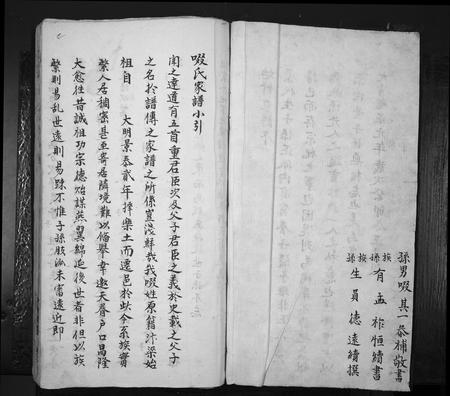 孫男啜其一恭補敬書
族孫有孟祚恒續書
族孫生員德遠續撰
啜氏家譜小引
聞之達道有五首重君臣次及父子君臣之義於史載之父子
之名於譜傳之家譜之所係豈淺鮮哉我啜姓原籍汴梁始
祖自 大明景泰貳年擇樂土而遷邑於此今系族實
繁人居稠密甚至寄居隣境難以備舉幸邀天眷户口昌隆
大愈往昔誠祖功宗德貽謀燕翼綿延後世者非但以族
繁則易乱世遠則易踈不惟子孫肢派未富遠近即